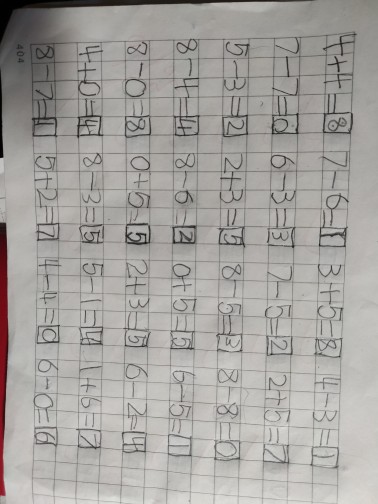 4+4=8 7-6=1 3+5=8 4-3=1
7-7=0 6-3=3 7-5=2 2+5=7
5-3=2 2+3=5 8-5=3 8-8=0
8-4=4 8-6=2 0+5=5 6-5=1
8-0=8 0+5=5 2+3=5 6-2=4
4+0=4 8-3=5 5-1=4 1+6=7
8-7=1 5+2=7 4-4=0 6-0=6
404